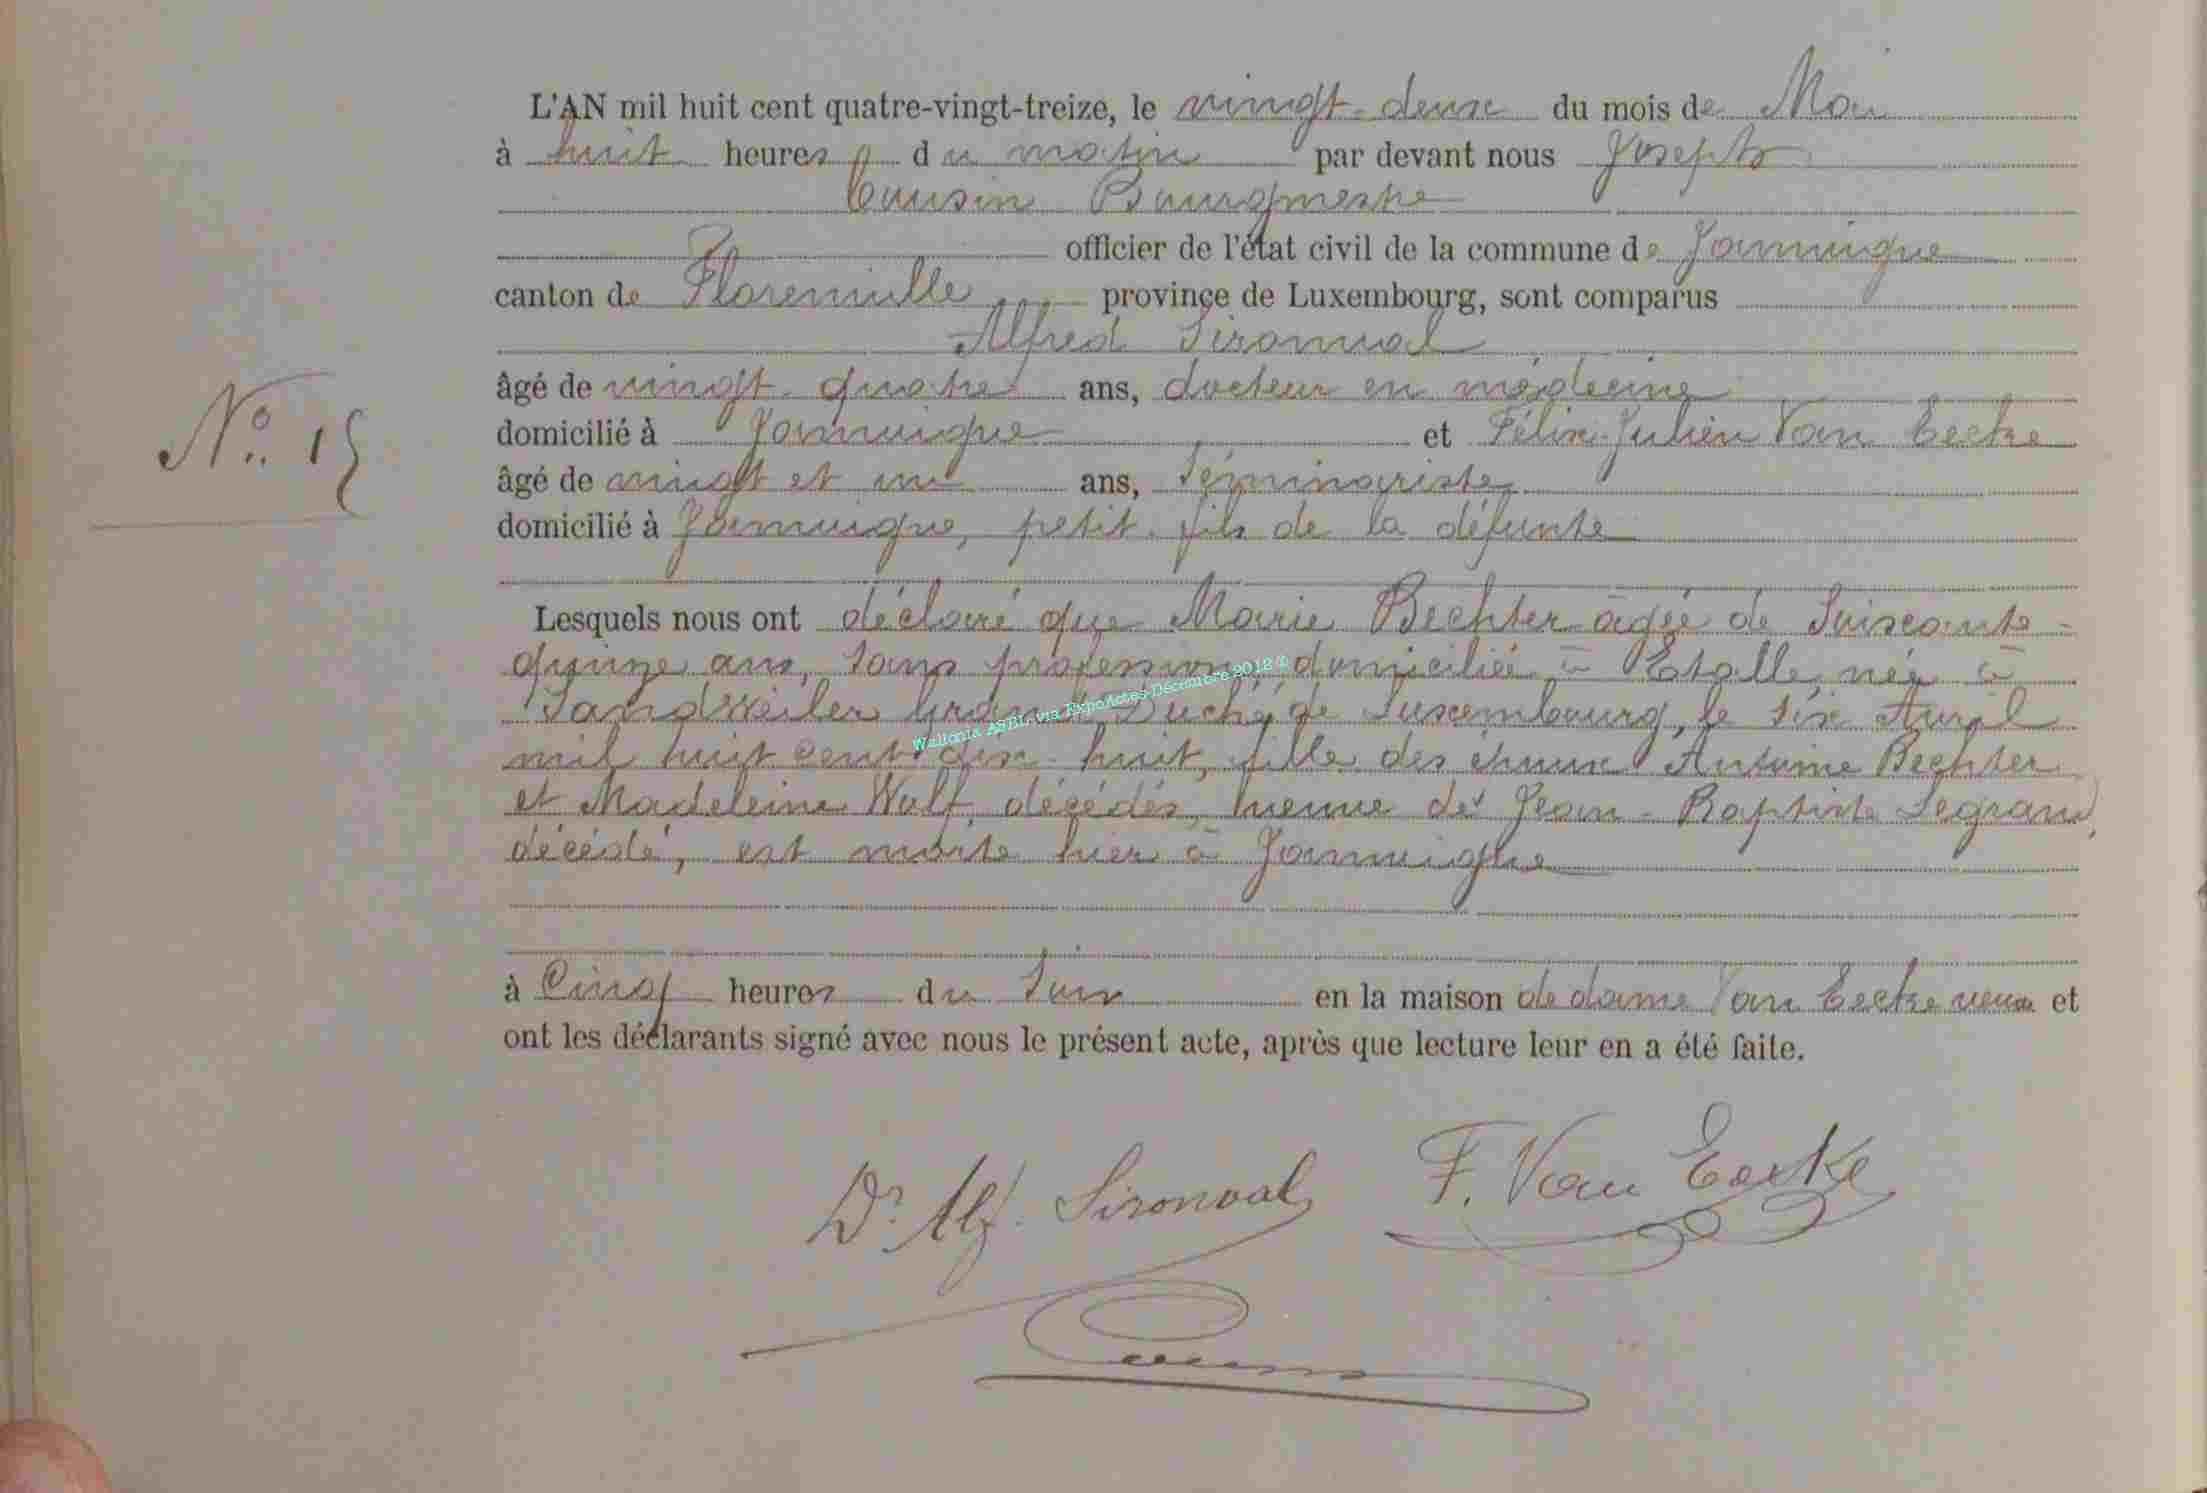 L'AN mil huit cent quatre-vingt-treize, le vingt-deux du mois de Mai
à huit heures du matin par devant nous Joseph
Cousin Bourgmestre
officier de l'état civil de la commune de Jamoigne
canton de Florenville province de Luxembourg, sont comparus
Alfred Sironval
âgé de vingt-quatre ans, docteur en médecine
domicilié à Jamoigne et Félix-Julien Van Eecke
N° 15
âgé de vingt et un ans, séminariste
domicilié à Jamoigne, petit-fils de la défunte
Lesquels nous ont déclaré que Marie Bechter âgée de Soixante-
quinze ans, sans profession, domiciliée à Etalle, née à
Sandweiler Grand Duché de Luxembourg, le six Avril
mil huit cent dix-huit, fille des époux Antoine Bechter
et Madeleine Wolf, décédés, veuve de Jean-Baptiste Legrand,
décédé, est morte hier à Jamoigne
Wallonia ASBL, via ExpoActes-Décembre 2012 ©
à Cinq heures du Soir en la maison de dame Van Eecke veuve et
ont les déclarants signé avec nous le présent acte, après que lecture leur en a été faite.
Dr Alf. Sironval F. Van Eecke
Cousin